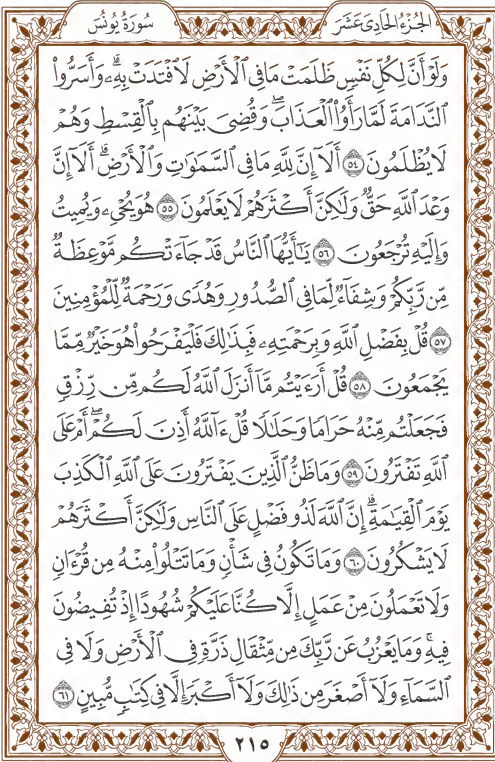 الجُزْءُ الحَادِى عَشَرَ
سُورَةُ يُونُسَ
وَلَوْ أَنَّ لِكُلِّ نَفْسٍ ظَلَمَتْ مَا فِى ٱلْأَرْضِ لَٱفْتَدَتْ بِهِۦۗ وَأَسَرُّوا۟
ٱلنَّدَامَةَ لَمَّا رَأَوُا۟ ٱلْعَذَابَۖ وَقُضِىَ بَيْنَهُم بِٱلْقِسْطِ وَهُمْ
لَا يُظْلَمُونَ ٥٤ أَلَآ إِنَّ لِلَّهِ مَا فِى ٱلسَّمَٰوَٰتِ وَٱلْأَرْضِۗ أَلَآ إِنَّ
وَعْدَ ٱللَّهِ حَقٌّ وَلَٰكِنَّ أَكْثَرَهُمْ لَا يَعْلَمُونَ ٥٥ هُوَ يُحْىِۦ وَيُمِيتُ
وَإِلَيْهِ تُرْجَعُونَ ٥٦ يَٰٓأَيُّهَا ٱلنَّاسُ قَدْ جَآءَتْكُم مَّوْعِظَةٌ
مِّن رَّبِّكُمْ وَشِفَآءٌ لِّمَا فِى ٱلصُّدُورِ وَهُدًى وَرَحْمَةٌ لِّلْمُؤْمِنِينَ
٥٧ قُلْ بِفَضْلِ ٱللَّهِ وَبِرَحْمَتِهِۦ فَبِذَٰلِكَ فَلْيَفْرَحُوا۟ هُوَ خَيْرٌ مِّمَّا
يَجْمَعُونَ ٥٨ قُلْ أَرَءَيْتُم مَّآ أَنزَلَ ٱللَّهُ لَكُم مِّن رِّزْقٍ
فَجَعَلْتُم مِّنْهُ حَرَامًا وَحَلَٰلًا قُلْ ءَآللَّهُ أَذِنَ لَكُمْۖ أَمْ عَلَى
ٱللَّهِ تَفْتَرُونَ ٥٩ وَمَا ظَنُّ ٱلَّذِينَ يَفْتَرُونَ عَلَى ٱللَّهِ ٱلْكَذِبَ
يَوْمَ ٱلْقِيَٰمَةِۗ إِنَّ ٱللَّهَ لَذُو فَضْلٍ عَلَى ٱلنَّاسِ وَلَٰكِنَّ أَكْثَرَهُمْ
لَا يَشْكُرُونَ ٦٠ وَمَا تَكُونُ فِى شَأْنٍ وَمَا تَتْلُوا۟ مِنْهُ مِن قُرْءَانٍ
وَلَا تَعْمَلُونَ مِنْ عَمَلٍ إِلَّا كُنَّا عَلَيْكُمْ شُهُودًا إِذْ تُفِيضُونَ
فِيهِۚ وَمَا يَعْزُبُ عَن رَّبِّكَ مِن مِّثْقَالِ ذَرَّةٍ فِى ٱلْأَرْضِ وَلَا فِى
ٱلسَّمَآءِ وَلَآ أَصْغَرَ مِن ذَٰلِكَ وَلَآ أَكْبَرَ إِلَّا فِى كِتَٰبٍ مُّبِينٍ ٦١
٢١٥